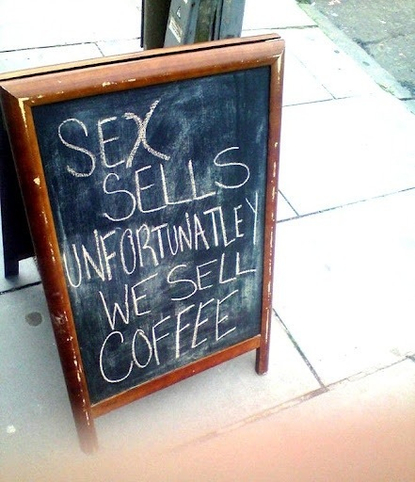 SEX
SELLS
UNFORTUNATLEY
WE SELL
COFFEE